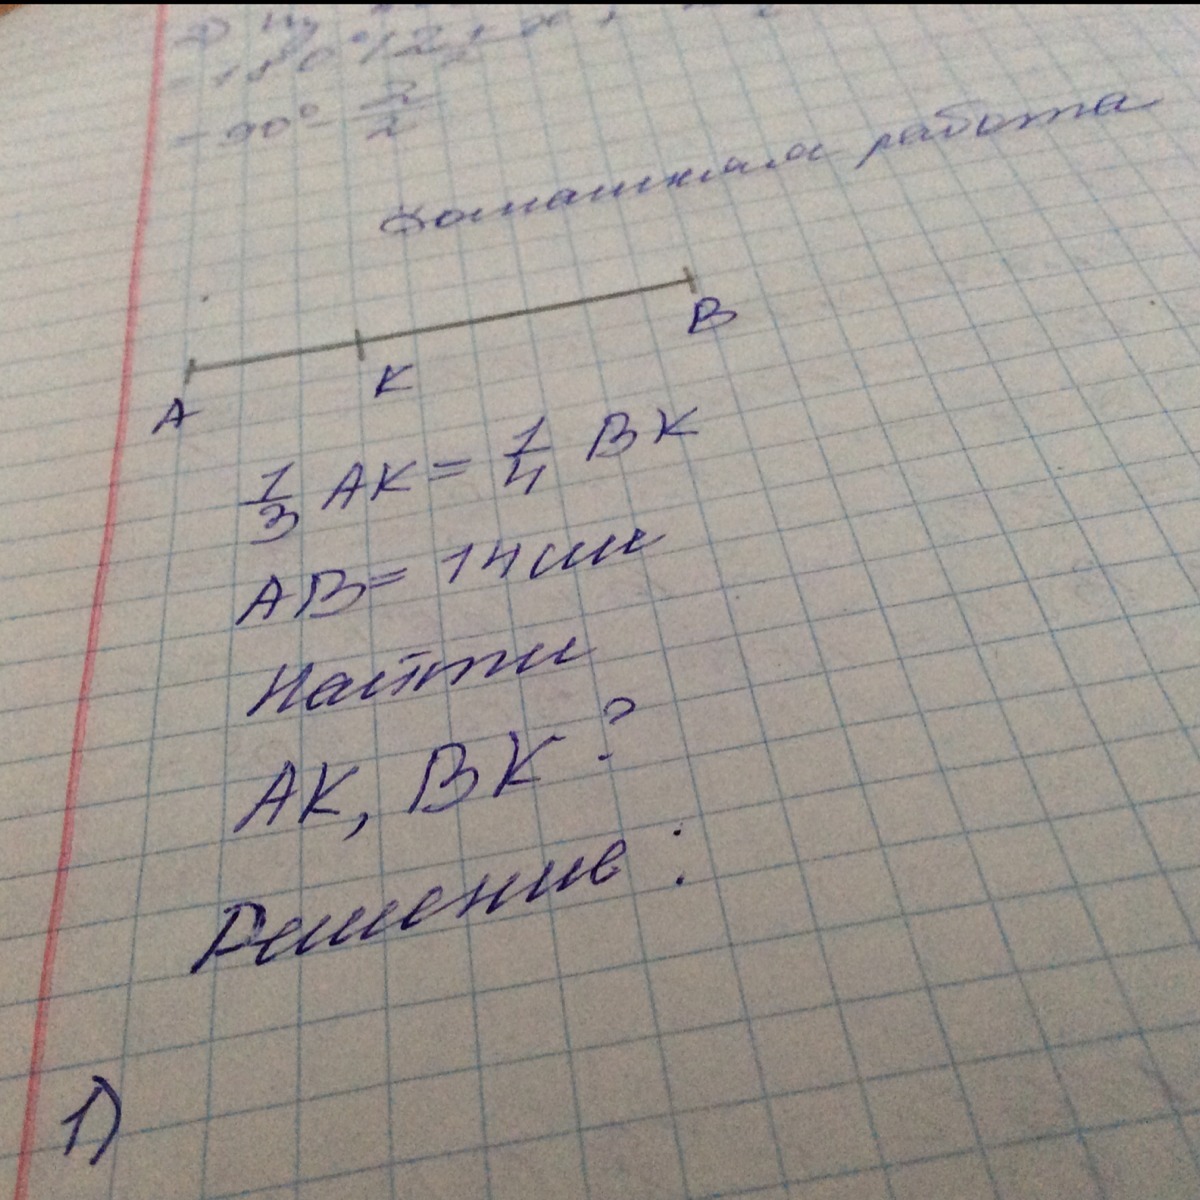 - 90° - 2/2
Домашняя работа
A K B
1/3 AK = 1/4 BK
AB = 14 см
Найти
AK, BK ?
Решение :
1)